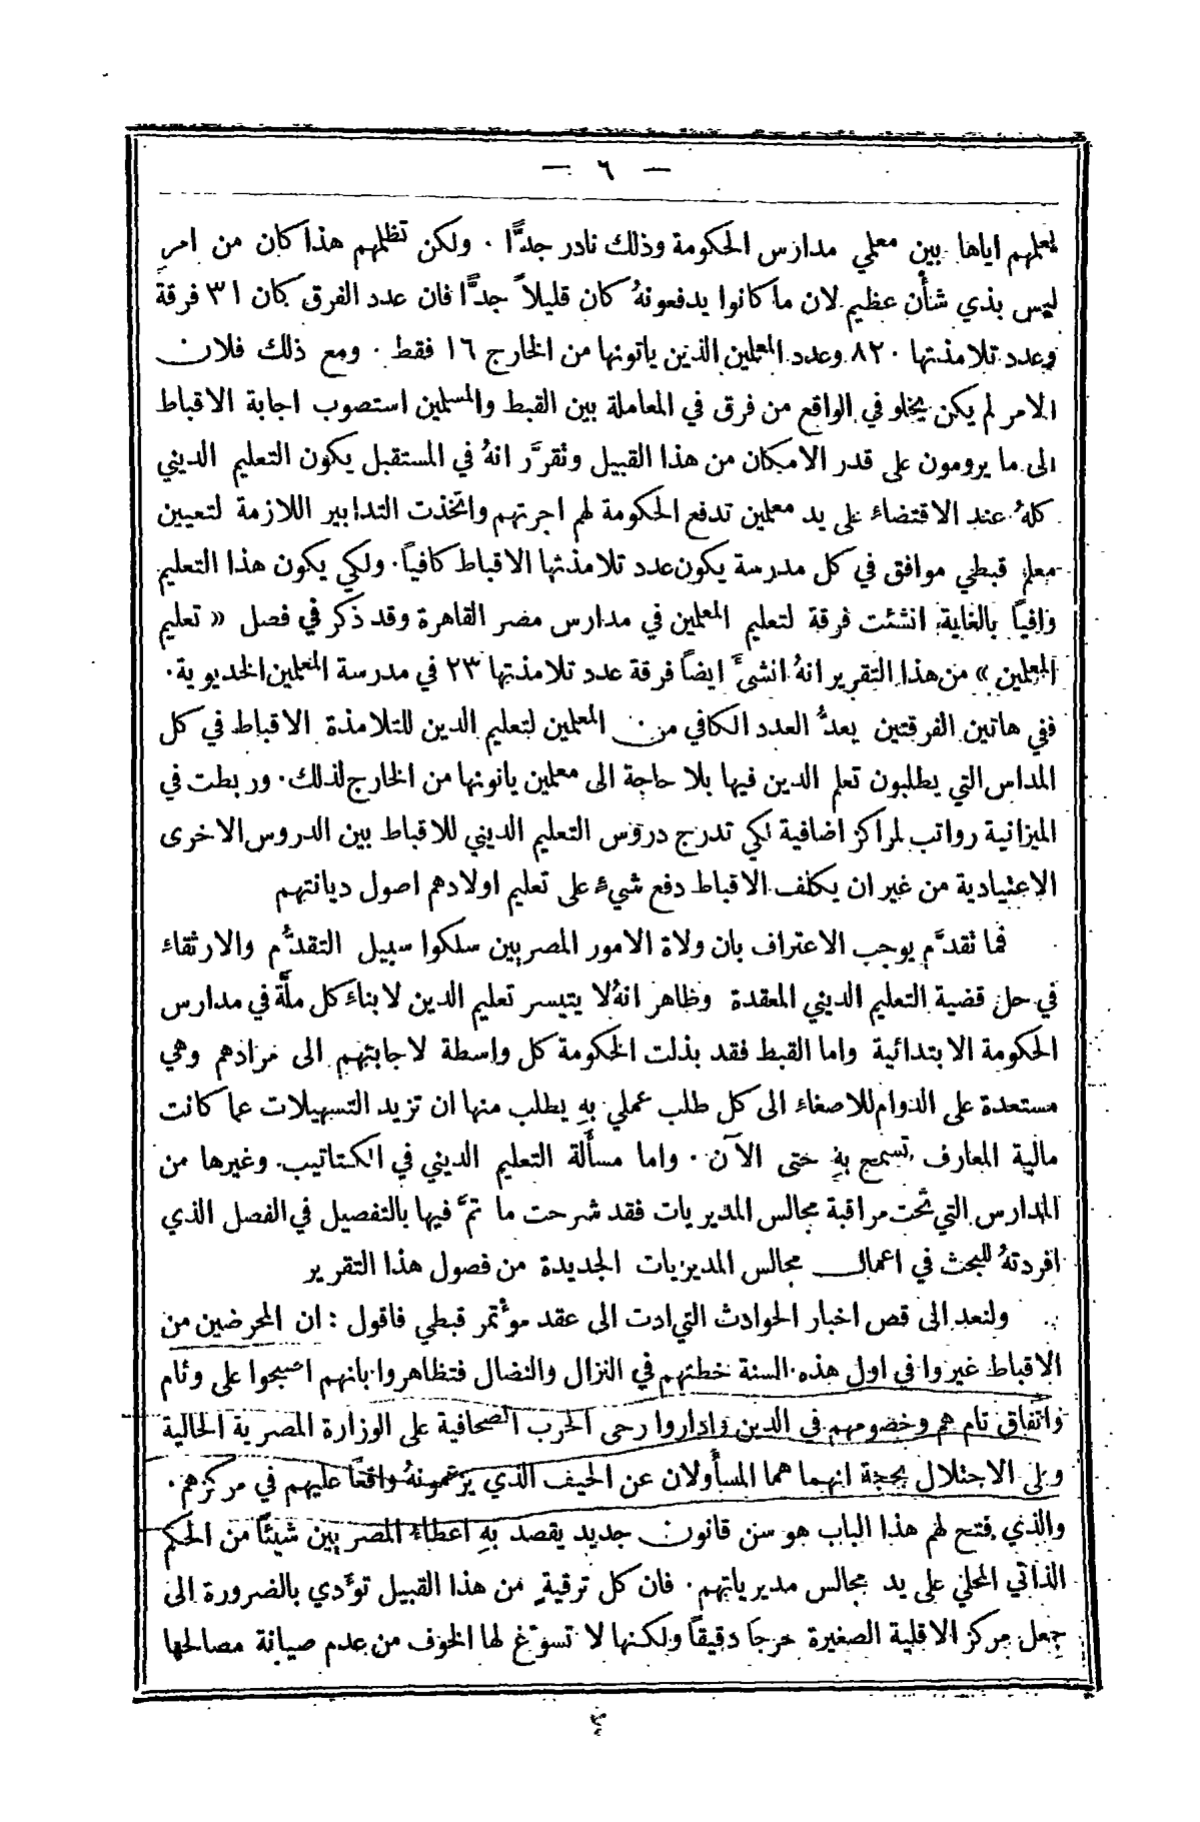 — ٦ —
يعلمهم اياها بين معلمي مدارس الحكومة وذلك نادر جدًّا . ولكن تظلمهم هذا كان من امر
ليس بذي شأن عظيم لان ما كانوا يدفعونهُ كان قليلاً جدًّا فان عدد الفرق كان ٣١ فرقة
وعدد تلامذتها ٨٢٠ وعدد المعلمين الذين ياتونها من الخارج ١٦ فقط . ومع ذلك فلان
الامر لم يكن يخلو في الواقع من فرق في المعاملة بين القبط والمسلمين استصوب اجابة الاقباط
الى ما يرومون على قدر الامكان من هذا القبيل وتقرَّر انهُ في المستقبل يكون التعليم الديني
كلهُ عند الاقتضاء على يد معلمين تدفع الحكومة لهم اجرتهم واتخذت التدابير اللازمة لتعيين
معلم قبطي موافق في كل مدرسة يكون عدد تلامذتها الاقباط كافياً . ولكي يكون هذا التعليم
وافياً بالغاية انشئت فرقة لتعليم المعلمين في مدارس مصر القاهرة وقد ذكر في فصل « تعليم
المعلمين » من هذا التقرير انهُ انشئَ ايضاً فرقة عدد تلامذتها ٢٣ في مدرسة المعلمين الخديوية .
ففي هاتين الفرقتين يعدُّ العدد الكافي من المعلمين لتعليم الدين للتلامذة الاقباط في كل
المداس التي يطلبون تعلم الدين فيها بلا حاجة الى معلمين ياتونها من الخارج لذلك . وربطت في
الميزانية رواتب لمراكز اضافية لكي تدرج دروس التعليم الديني للاقباط بين الدروس الاخرى
الاعتيادية من غير ان يكلف الاقباط دفع شيءٍ على تعليم اولادهم اصول ديانتهم
فما تقدَّم يوجب الاعتراف بان ولاة الامور المصريين سلكوا سبيل التقدُّم والارتقاء
في حل قضية التعليم الديني المعقدة وظاهر انهُ لا يتيسر تعليم الدين لابناء كل ملَّة في مدارس
الحكومة الابتدائية واما القبط فقد بذلت الحكومة كل واسطة لاجابتهم الى مرادهم وهي
مستعدة على الدوام للاصغاء الى كل طلب عملي بهِ يطلب منها ان تزيد التسهيلات عما كانت
مالية المعارف تسمح بهِ حتى الآن . واما مسألة التعليم الديني في الكتاتيب وغيرها من
المدارس التي تحت مراقبة مجالس المديريات فقد شرحت ما تمَّ فيها بالتفصيل في الفصل الذي
افردتهُ للبحث في اعمال مجالس المديريات الجديدة من فصول هذا التقرير
ولنعد الى قص اخبار الحوادث التي ادت الى عقد مؤتمر قبطي فاقول : ان المحرضين من
الاقباط غيروا في اول هذه السنة خطتهم في النزال والنضال فتظاهروا بانهم اصبحوا على وئام
واتفاق تام هم وخصومهم في الدين واداروا رحى الحرب الصحافية على الوزارة المصرية الحالية
وعلى الاحتلال بحجة انهما هما المسأولان عن الحيف الذي يزعمونهُ واقعاً عليهم في مركزهم .
والذي فتح لهم هذا الباب هو سن قانون جديد يقصد بهِ اعطاء المصريين شيئاً من الحكم
الذاتي المحلي على يد مجالس مديرياتهم . فان كل ترقيةٍ من هذا القبيل تؤدي بالضرورة الى
جعل مركز الاقلية الصغيرة حرجا دقيقاً ولكنها لا تسوّغ لها الخوف من عدم صيانة مصالحها